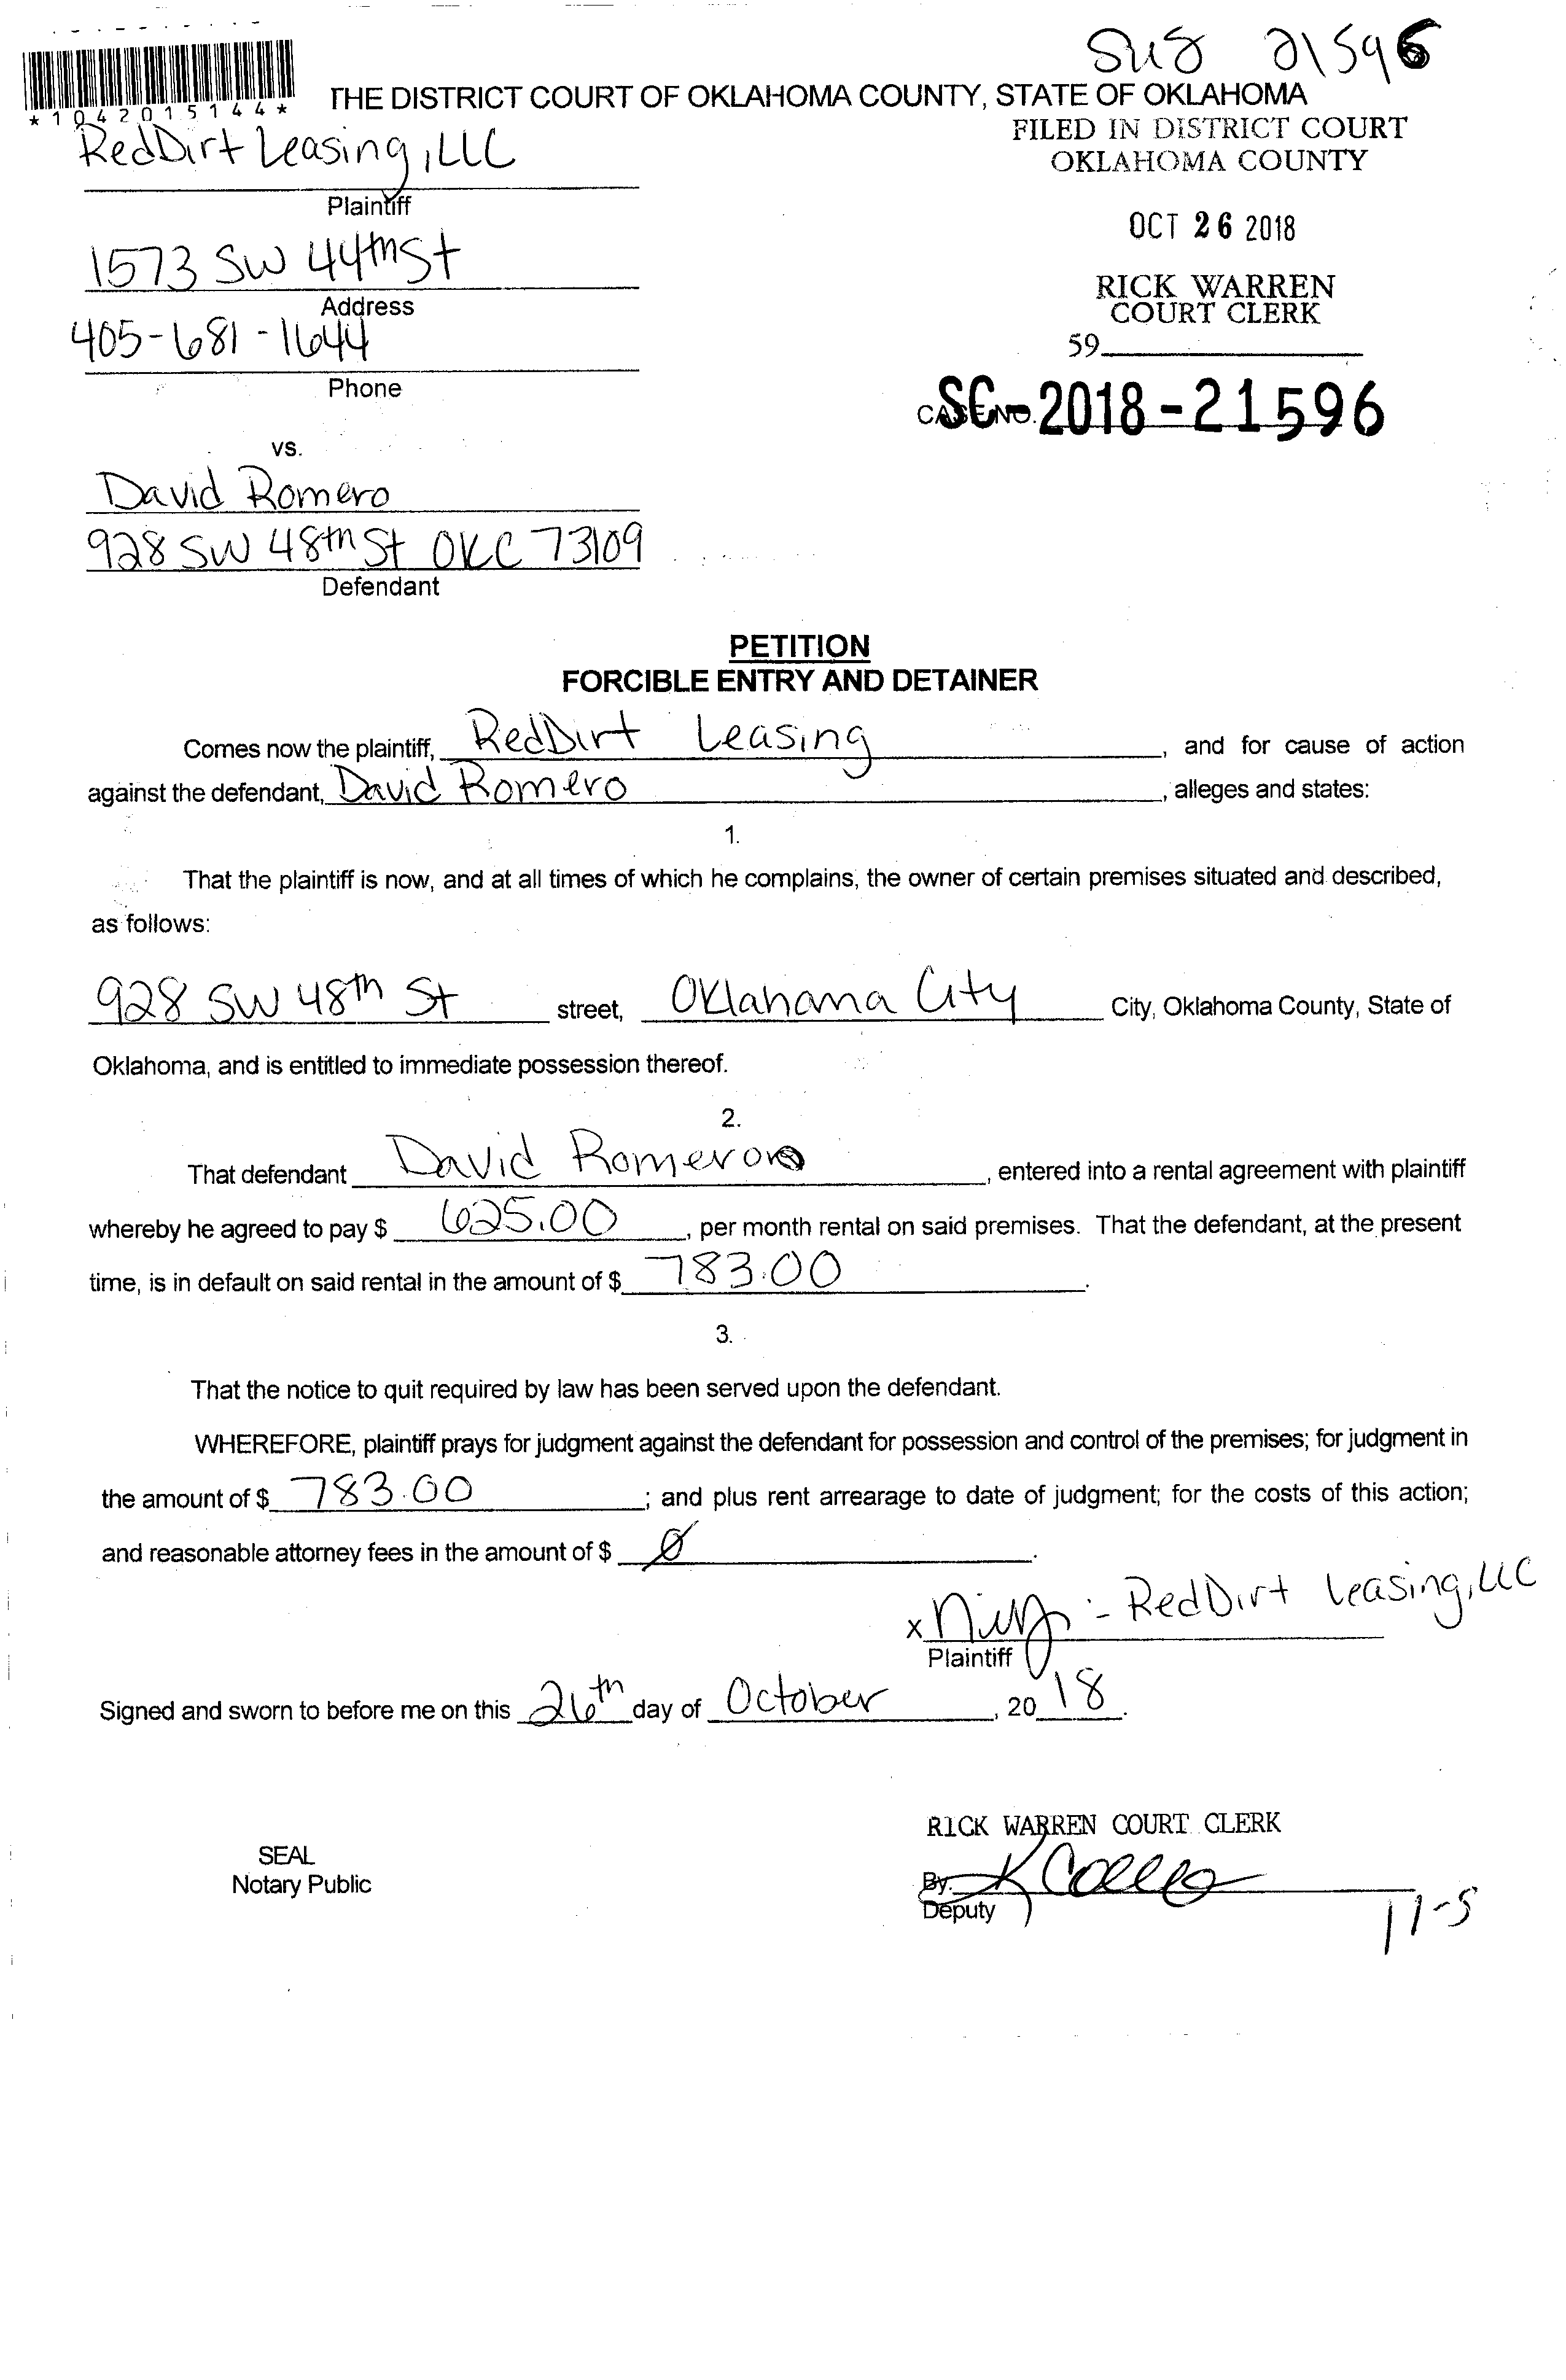 21596
*1042015144*
THE DISTRICT COURT OF OKLAHOMA COUNTY, STATE OF OKLAHOMA
RedDirt Leasing, LLC
Plaintiff
FILED IN DISTRICT COURT
OKLAHOMA COUNTY
1573 SW 44th St
Address
OCT 26 2018
405-681-1644
Phone
RICK WARREN
COURT CLERK
59
CASE NO. SC-2018-21596
vs.
David Romero
928 SW 48th St OKC 73109
Defendant
PETITION
FORCIBLE ENTRY AND DETAINER
Comes now the plaintiff, RedDirt Leasing, and for cause of action
against the defendant, David Romero, alleges and states:
1.
That the plaintiff is now, and at all times of which he complains, the owner of certain premises situated and described,
as follows:
928 SW 48th St street, Oklahoma City City, Oklahoma County, State of
Oklahoma, and is entitled to immediate possession thereof.
2.
That defendant David Romero, entered into a rental agreement with plaintiff
whereby he agreed to pay $ 625.00, per month rental on said premises. That the defendant, at the present
time, is in default on said rental in the amount of $ 783.00.
3.
That the notice to quit required by law has been served upon the defendant.
WHEREFORE, plaintiff prays for judgment against the defendant for possession and control of the premises; for judgment in
the amount of $ 783.00; and plus rent arrearage to date of judgment; for the costs of this action;
and reasonable attorney fees in the amount of $ 0.
x - RedDirt Leasing, LLC
Plaintiff
Signed and sworn to before me on this 26th day of October, 2018.
RICK WARREN COURT CLERK
SEAL
Notary Public
By.
Deputy
11-5